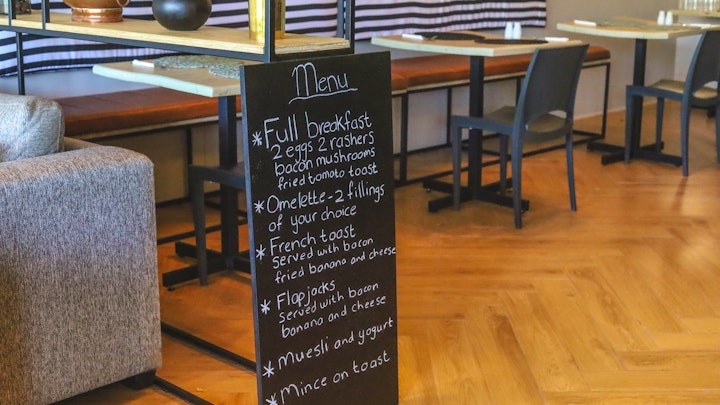 Menu
* Full breakfast
2 eggs 2 rashers
bacon mushrooms
fried tomato toast
* Omelette - 2 fillings
of your choice
* French toast
served with bacon
fried banana and cheese
* Flapjacks
served with bacon
banana and cheese
* Muesli and yogurt
* Mince on toast